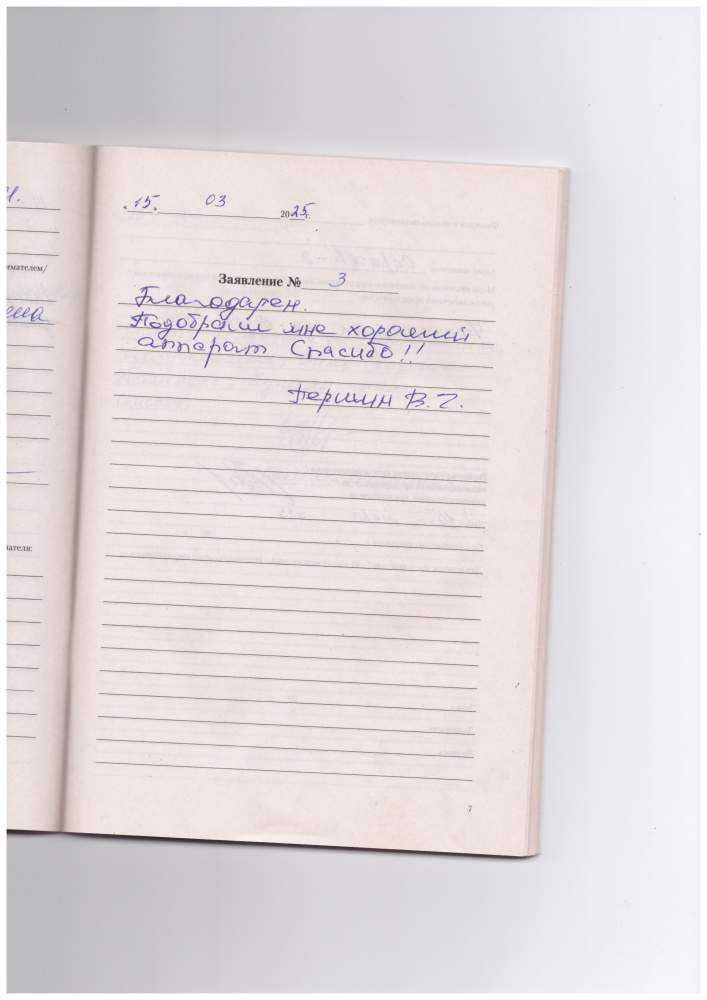 и.
имателем/
ена
ателя:
« 15 » 03 2025 г.
Заявление № 3
Благодарен.
Подобрали мне хороший
аппарат. Спасибо!!
Першин В. Г.
7